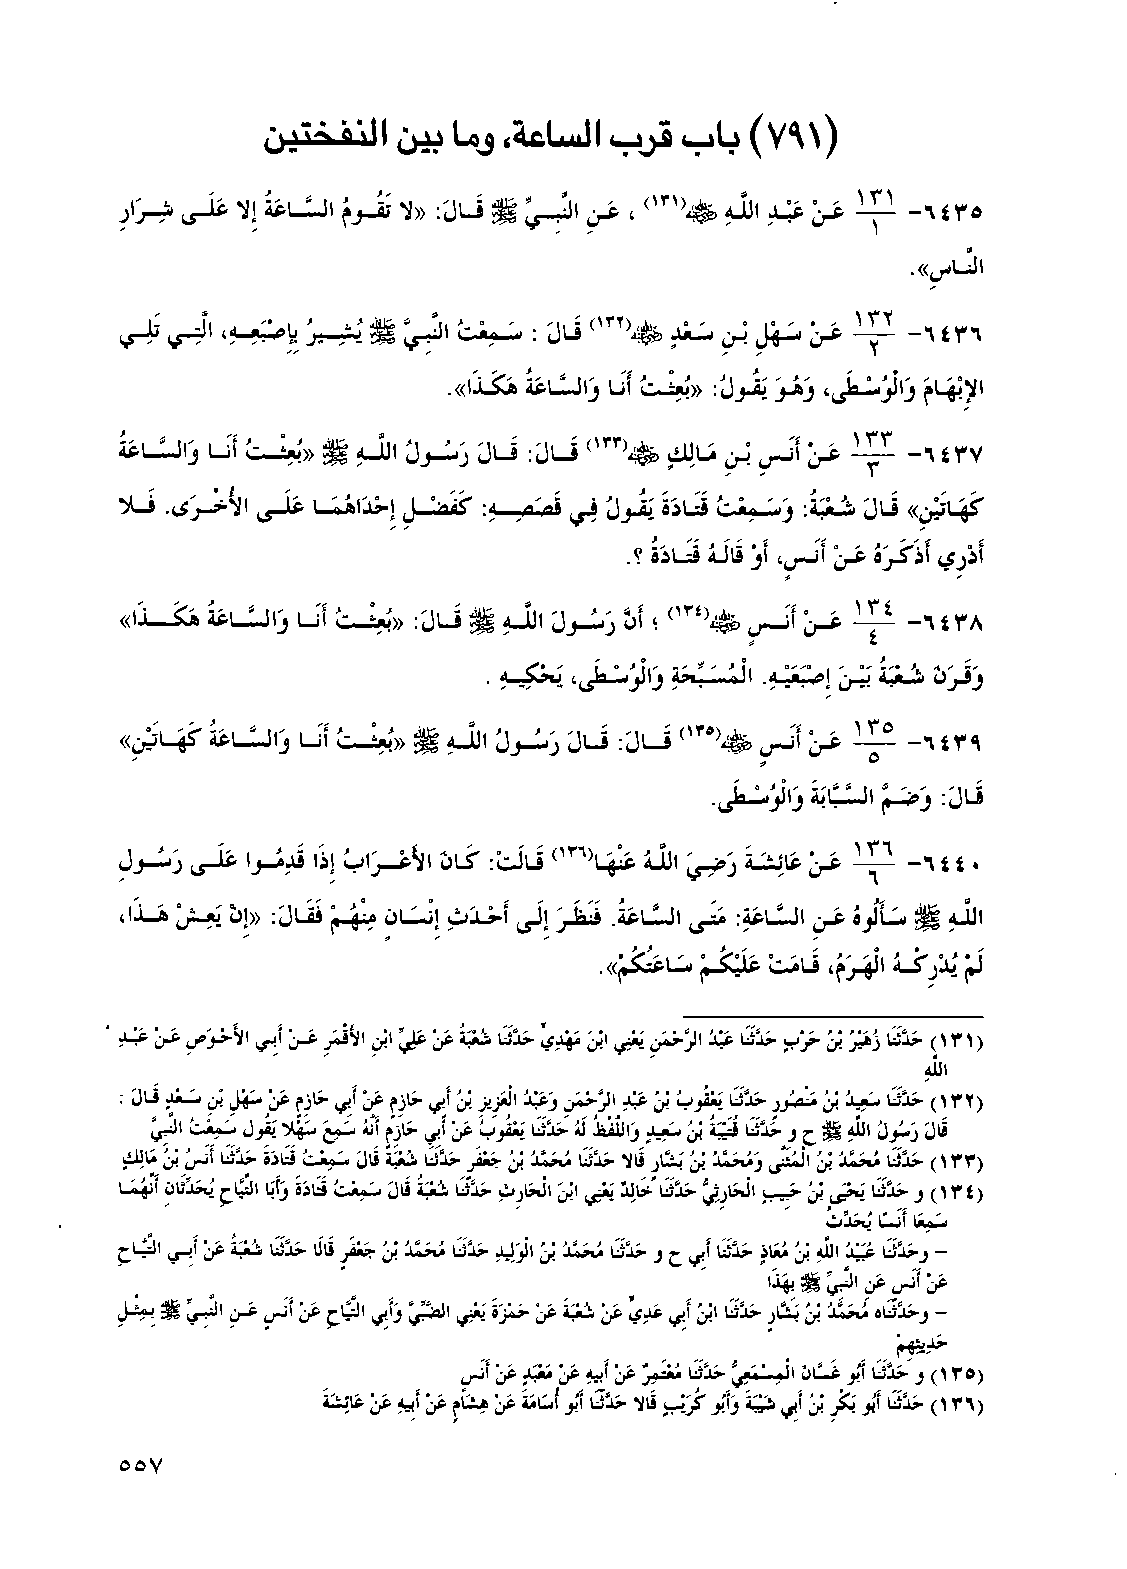 (٧٩١) باب قرب الساعة، وما بين النفختين
٦٤٣٥- ١٣١/١ عَنْ عَبْدِ اللَّهِ ﷺ(١٣١) ، عَنِ النَّبِيِّ ﷺ قَالَ: «لا تَقُومُ السَّاعَةُ إلا عَلَى شِرَارِ
النَّاسِ».
٦٤٣٦- ١٣٢/٢ عَنْ سَهْلِ بْنِ سَعْدٍ ﷺ(١٣٢) قَالَ : سَمِعْتُ النَّبِيَّ ﷺ يُشِيرُ بِإِصْبَعِهِ، الَّتِي تَلِي
الإِبْهَامَ وَالْوُسْطَى، وَهُوَ يَقُولُ: «بُعِثْتُ أَنَا وَالسَّاعَةُ هَكَذَا».
٦٤٣٧- ١٣٣/٣ عَنْ أَنَسِ بْنِ مَالِكٍ ﷺ(١٣٣) قَالَ: قَالَ رَسُولُ اللَّهِ ﷺ «بُعِثْتُ أَنَا وَالسَّاعَةُ
كَهَاتَيْنِ» قَالَ شُعْبَةُ: وَسَمِعْتُ قَتَادَةَ يَقُولُ فِي قَصَصِهِ: كَفَضْلِ إِحْدَاهُمَا عَلَى الأُخْرَى. فَلا
أَدْرِي أَذَكَرَهُ عَنْ أَنَسٍ، أَوْ قَالَهُ قَتَادَةُ ؟.
٦٤٣٨- ١٣٤/٤ عَنْ أَنَسٍ ﷺ(١٣٤) ؛ أَنَّ رَسُولَ اللَّهِ ﷺ قَالَ: «بُعِثْتُ أَنَا وَالسَّاعَةُ هَكَذَا»
وَقَرَنَ شُعْبَةُ بَيْنَ إِصْبَعَيْهِ. الْمُسَبِّحَةِ وَالْوُسْطَى، يَحْكِيهِ .
٦٤٣٩- ١٣٥/٥ عَنْ أَنَسٍ ﷺ(١٣٥) قَالَ: قَالَ رَسُولُ اللَّهِ ﷺ «بُعِثْتُ أَنَا وَالسَّاعَةُ كَهَاتَيْنِ»
قَالَ: وَضَمَّ السَّبَّابَةَ وَالْوُسْطَى.
٦٤٤٠- ١٣٦/٦ عَنْ عَائِشَةَ رَضِيَ اللَّهُ عَنْهَا(١٣٦) قَالَتْ: كَانَ الأَعْرَابُ إِذَا قَدِمُوا عَلَى رَسُولِ
اللَّهِ ﷺ سَأَلُوهُ عَنِ السَّاعَةِ: مَتَى السَّاعَةُ. فَنَظَرَ إِلَى أَحْدَثِ إِنْسَانٍ مِنْهُمْ فَقَالَ: «إِنْ يَعِشْ هَذَا،
لَمْ يُدْرِكْهُ الْهَرَمُ، قَامَتْ عَلَيْكُمْ سَاعَتُكُمْ».
(١٣١) حَدَّثَنَا زُهَيْرُ بْنُ حَرْبٍ حَدَّثَنَا عَبْدُ الرَّحْمَنِ يَعْنِي ابْنَ مَهْدِيٍّ حَدَّثَنَا شُعْبَةُ عَنْ عَلِيِّ ابْنِ الأَقْمَرِ عَنْ أَبِي الأَحْوَصِ عَنْ عَبْدِ
اللَّهِ
(١٣٢) حَدَّثَنَا سَعِيدُ بْنُ مَنْصُورٍ حَدَّثَنَا يَعْقُوبُ بْنُ عَبْدِ الرَّحْمَنِ وَعَبْدُ الْعَزِيزِ بْنُ أَبِي حَازِمٍ عَنْ أَبِي حَازِمٍ عَنْ سَهْلِ بْنِ سَعْدٍ قَالَ :
قَالَ رَسُولُ اللَّهِ ﷺ ح و حَدَّثَنَا قُتَيْبَةُ بْنُ سَعِيدٍ وَاللَّفْظُ لَهُ حَدَّثَنَا يَعْقُوبُ عَنْ أَبِي حَازِمٍ أَنَّهُ سَمِعَ سَهْلا يَقُولُ سَمِعْتُ النَّبِيَّ
(١٣٣) حَدَّثَنَا مُحَمَّدُ بْنُ الْمُثَنَّى وَمُحَمَّدُ بْنُ بَشَّارٍ قَالا حَدَّثَنَا مُحَمَّدُ بْنُ جَعْفَرٍ حَدَّثَنَا شُعْبَةُ قَالَ سَمِعْتُ قَتَادَةَ حَدَّثَنَا أَنَسُ بْنُ مَالِكٍ
(١٣٤) و حَدَّثَنَا يَحْيَى بْنُ حَبِيبٍ الْحَارِثِيُّ حَدَّثَنَا خَالِدٌ يَعْنِي ابْنَ الْحَارِثِ حَدَّثَنَا شُعْبَةُ قَالَ سَمِعْتُ قَتَادَةَ وَأَبَا التَّيَّاحِ يُحَدِّثَانِ أَنَّهُمَا
سَمِعَا أَنَسًا يُحَدِّثُ
– وحَدَّثَنَا عُبَيْدُ اللَّهِ بْنُ مُعَاذٍ حَدَّثَنَا أَبِي ح و حَدَّثَنَا مُحَمَّدُ بْنُ الْوَلِيدِ حَدَّثَنَا مُحَمَّدُ بْنُ جَعْفَرٍ قَالَا حَدَّثَنَا شُعْبَةُ عَنْ أَبِي التَّيَّاحِ
عَنْ أَنَسٍ عَنِ النَّبِيِّ ﷺ بِهَذَا
– وحَدَّثَنَاه مُحَمَّدُ بْنُ بَشَّارٍ حَدَّثَنَا ابْنُ أَبِي عَدِيٍّ عَنْ شُعْبَةَ عَنْ حَمْزَةَ يَعْنِي الضَّبِّيَّ وَأَبِي التَّيَّاحِ عَنْ أَنَسٍ عَنِ النَّبِيِّ ﷺ بِمِثْلِ
حَدِيثِهِمْ
(١٣٥) و حَدَّثَنَا أَبُو غَسَّانَ الْمِسْمَعِيُّ حَدَّثَنَا مُعْتَمِرٌ عَنْ أَبِيهِ عَنْ مَعْبَدٍ عَنْ أَنَسٍ
(١٣٦) حَدَّثَنَا أَبُو بَكْرِ بْنُ أَبِي شَيْبَةَ وَأَبُو كُرَيْبٍ قَالا حَدَّثَنَا أَبُو أُسَامَةَ عَنْ هِشَامٍ عَنْ أَبِيهِ عَنْ عَائِشَةَ
٥٥٧